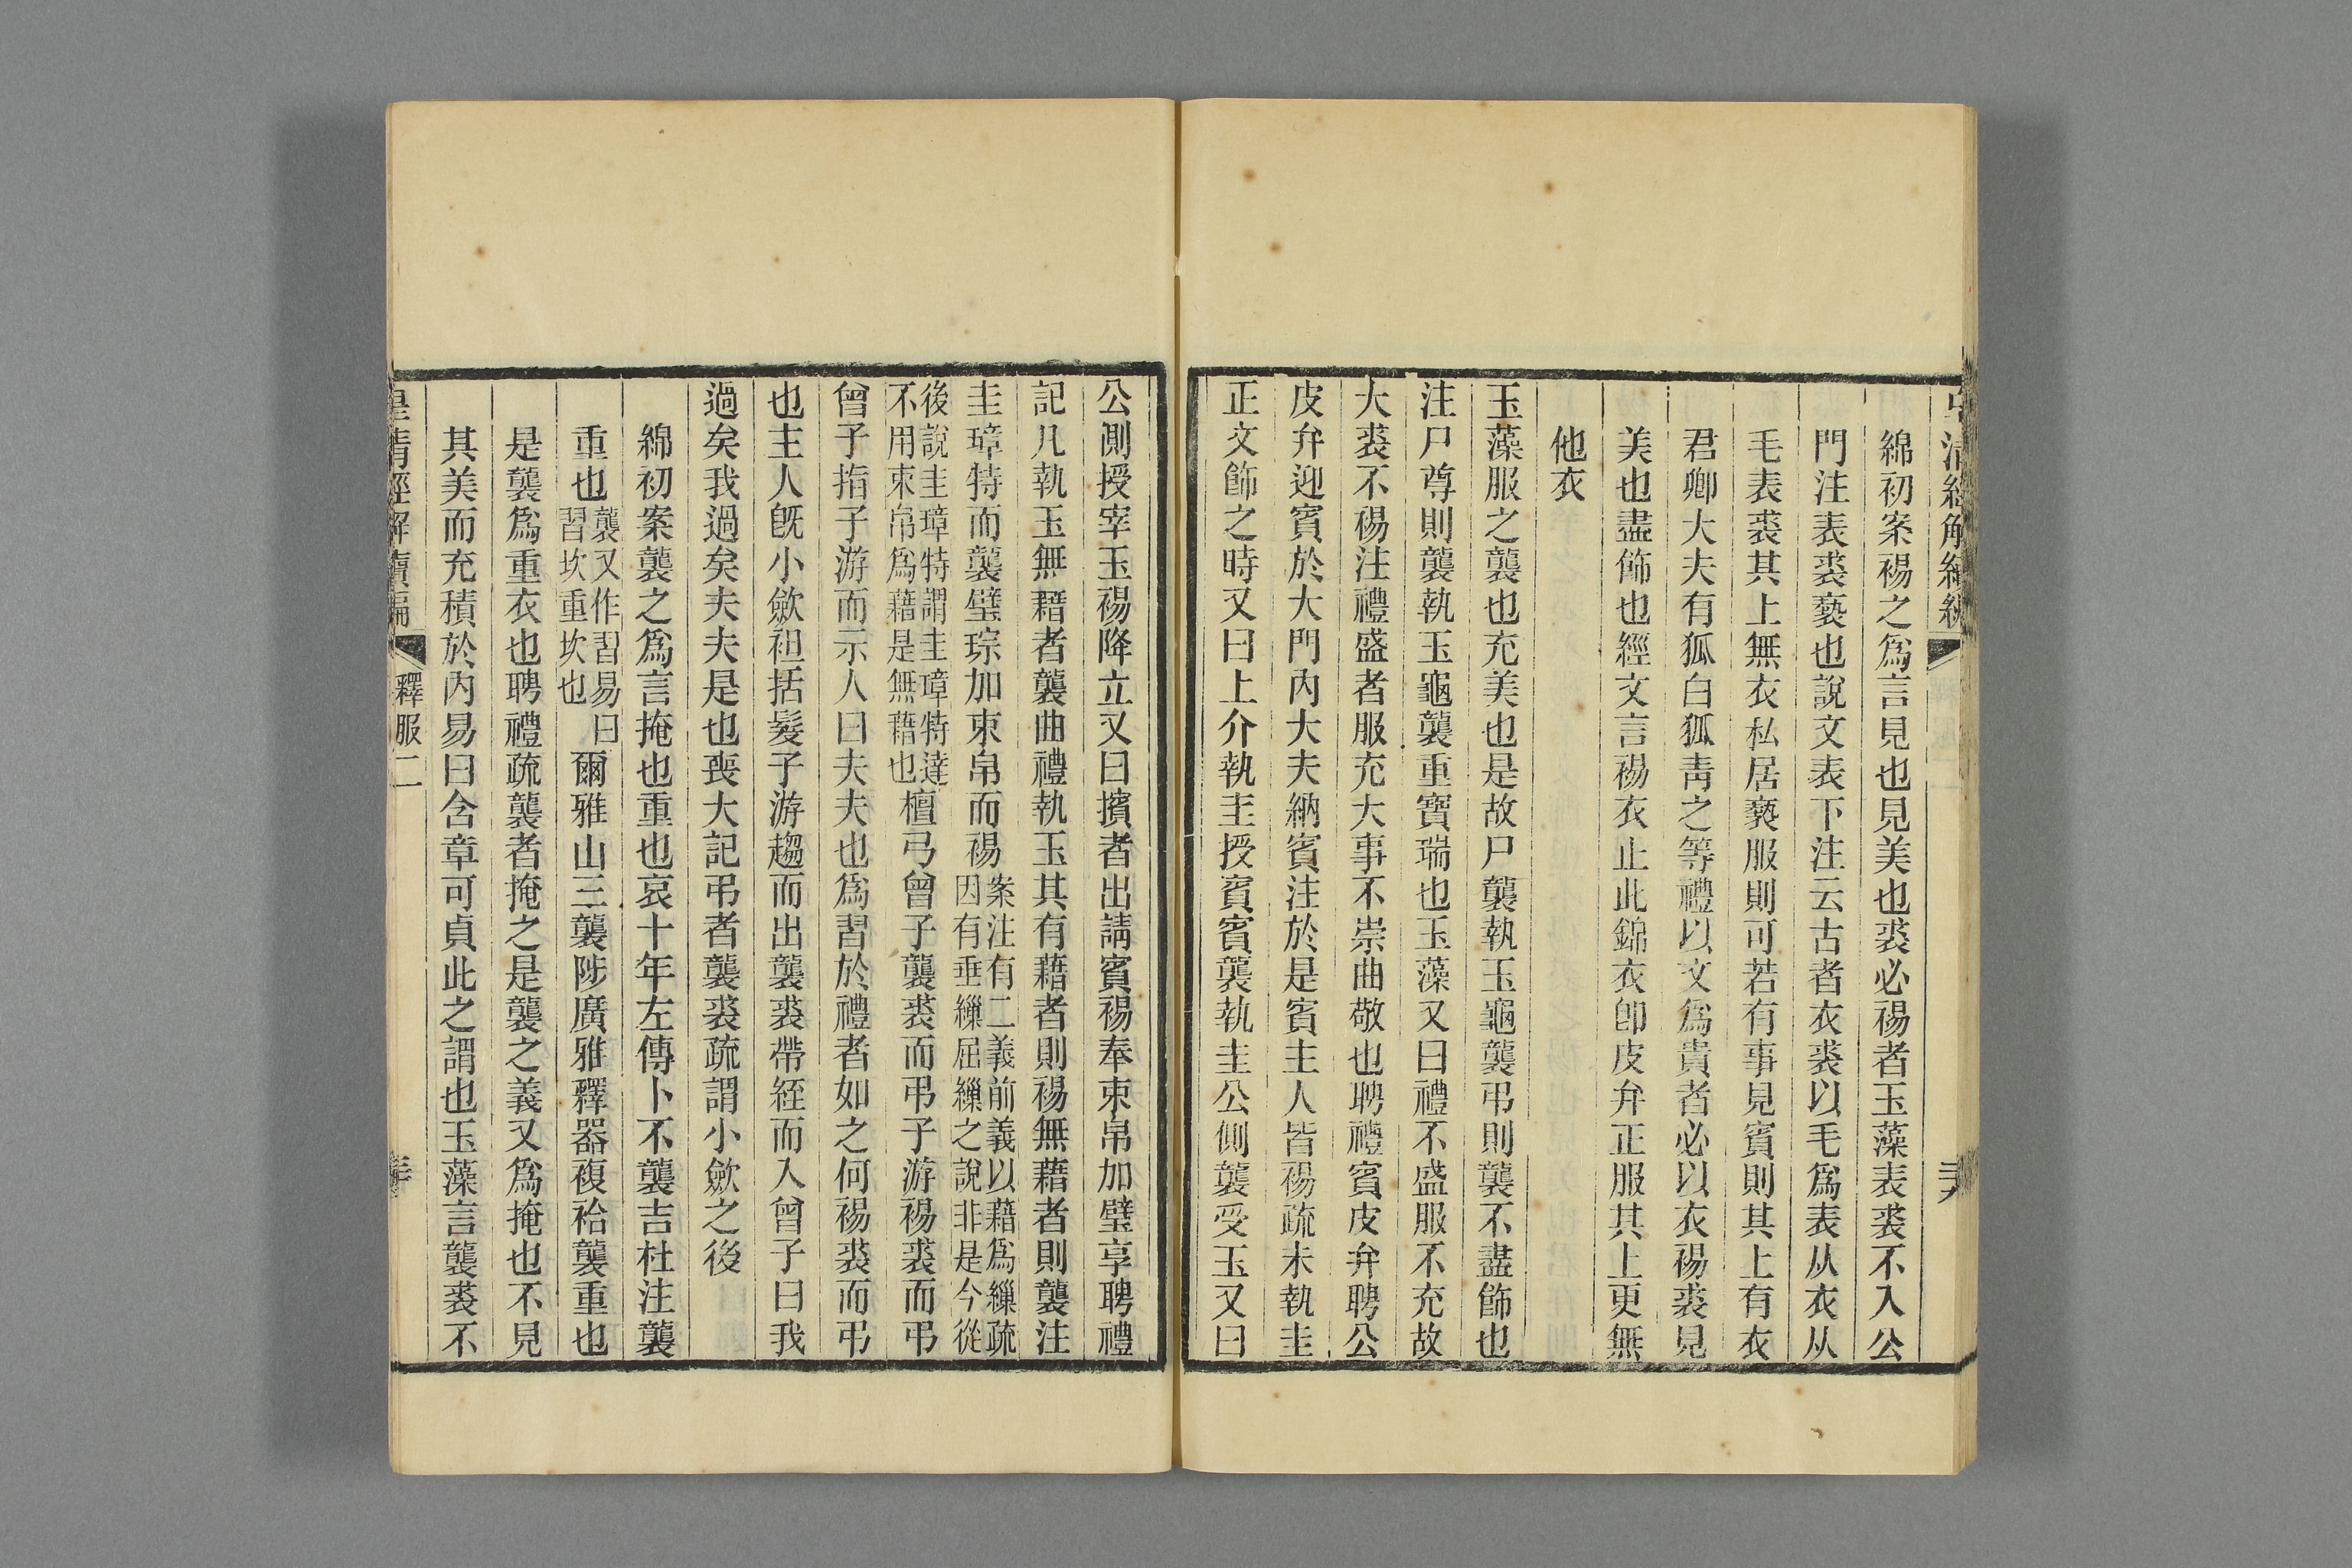 綿初案裼之爲言見也見美也裘必裼者玉藻表裘不入公
門注表裘褻也說文表下注云古者衣裘以毛爲表从衣从
毛表裘其上無衣私居褻服則可若有事見賓則其上有衣
君卿大夫有狐白狐靑之等禮以文爲貴者必以衣裼裘見
美也盡飾也經文言裼衣止此錦衣卽皮弁正服其上更無
他衣
玉藻服之襲也充美也是故尸襲執玉龜襲弔則襲不盡飾也
注尸尊則襲執玉龜襲重寶瑞也玉藻又曰禮不盛服不充故
大裘不裼注禮盛者服充大事不崇曲敬也聘禮賓皮弁聘公
皮弁迎賓於大門內大夫納賓注於是賓主人皆裼疏未執圭
正文飾之時又曰上介執圭授賓賓襲執圭公側襲受玉又曰
公側授宰玉裼降立又曰擯者出請賓裼奉束帛加璧享聘禮
記凡執玉無藉者襲曲禮執玉其有藉者則裼無藉者則襲注
圭璋特而襲璧琮加束帛而裼案注有二義前義以藉爲繅疏因有垂繅屈繅之說非是今從
後說圭璋特謂圭璋特達不用束帛爲藉是無藉也檀弓曾子襲裘而弔子游裼裘而弔
曾子指子游而示人曰夫夫也爲習於禮者如之何裼裘而弔
也主人旣小斂袒括髮子游趨而出襲裘帶絰而入曾子曰我
過矣我過矣夫夫是也喪大記弔者襲裘疏謂小斂之後
綿初案襲之爲言掩也重也哀十年左傳卜不襲吉杜注襲
重也襲又作習易曰習坎重坎也爾雅山三襲陟廣雅釋器複袷襲重也
是襲爲重衣也聘禮疏襲者掩之是襲之義又爲掩也不見
其美而充積於內易曰含章可貞此之謂也玉藻言襲裘不
皇淸經解續編　釋服二